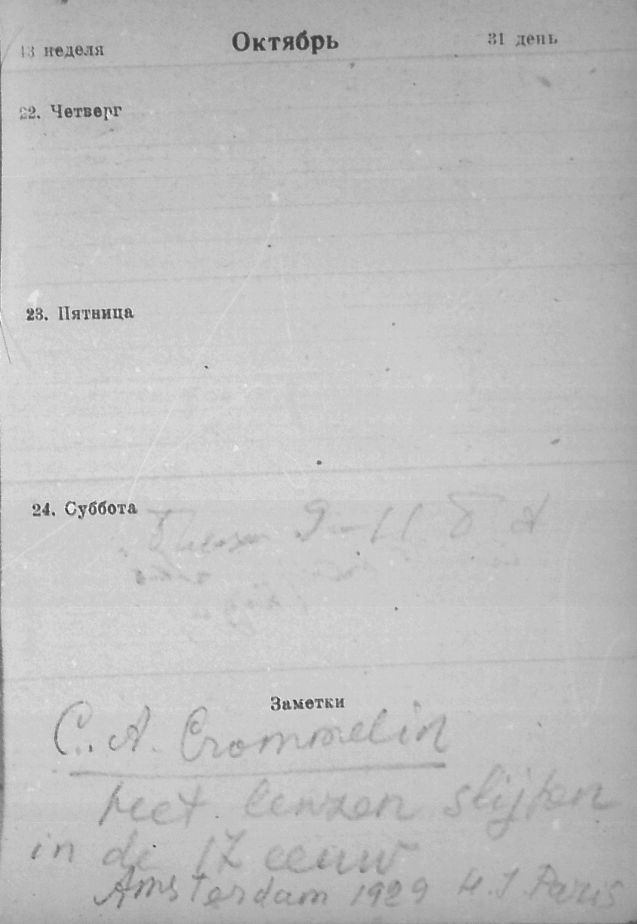 43 неделя Октябрь 31 день
22. Четверг
23. Пятница
24. Суббота
9–11
Заметки
C. A. Crommelin
Het lenzen slijpen
in de 17 eeuw
Amsterdam 1929 H. J. Paris